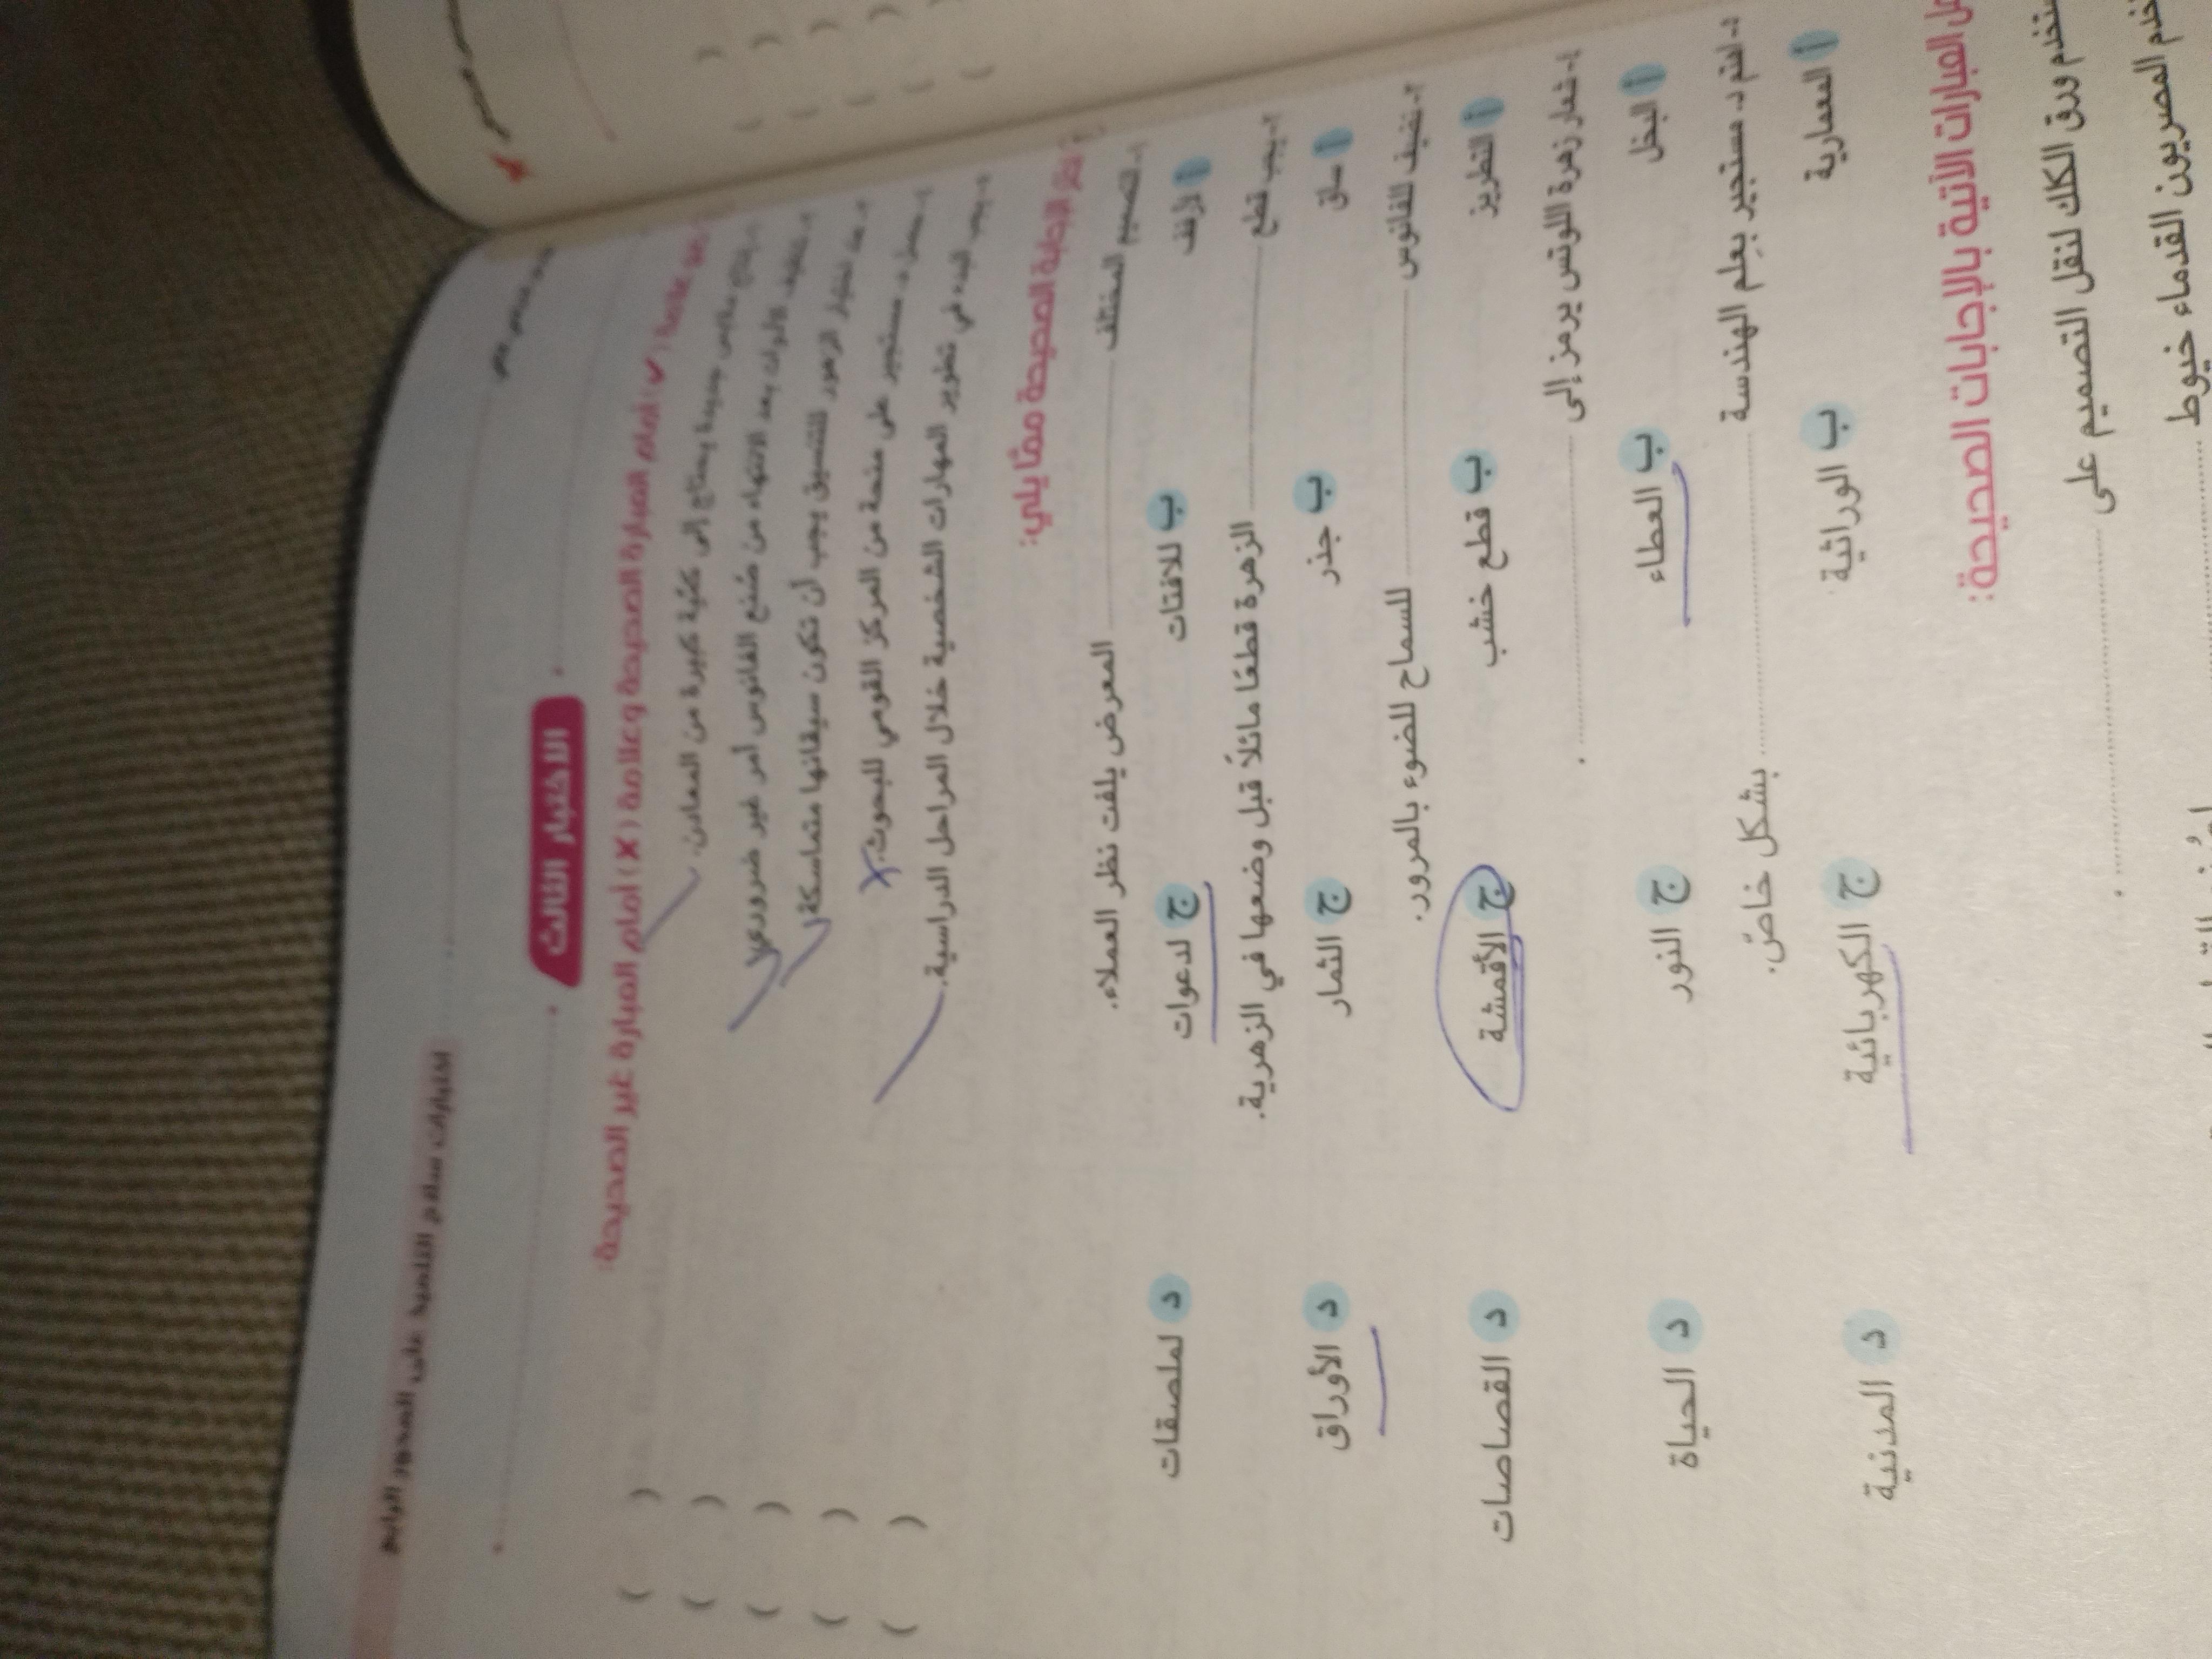 اختبارات سلاح التلميذ على المحور الرابع
الاختبار الثالث
علامة (✓) أمام العبارة الصحيحة وعلامة (✗) أمام العبارة غير الصحيحة:
ملابس جديدة يحتاج إلى كمية كبيرة من المعادن. ( )
٢- تنظيف الأدوات بعد الانتهاء من صُنع الفانوس أمر غير ضروري. ( )
٣- عند اختيار الزهور للتنسيق يجب أن تكون سيقانها متماسكة. ( )
٤- حصل د. مستجير على منحة من المركز القومي للبحوث. ( )
٥- يجب البدء في تطوير المهارات الشخصية خلال المراحل الدراسية. ( )
الإجابة الصحيحة ممَّا يلي:
١- تصميم المختلف ............ المعرض يلفت نظر العملاء.
أ لأرفف ب للافتات ج لدعوات د لملصقات
٢- يجب قطع ............ الزهرة قطعًا مائلاً قبل وضعها في الزهرية.
أ ساق ب جذر ج الثمار د الأوراق
٣- نضيف للفانوس ............ للسماح للضوء بالمرور.
أ التطريز ب قطع خشب ج الأقمشة د القصاصات
٤- شعار زهرة اللوتس يرمز إلى ............ .
أ البخل ب العطاء ج النور د الحياة
٥- اهتم د. مستجير بعِلم الهندسة ............ بشكل خاصّ.
أ المعمارية ب الوراثية ج الكهربائية د المدنية
العبارات الآتية بالإجابات الصحيحة:
ورق الكلك لنقل التصميم على ............ .
المصريون القدماء خيوط